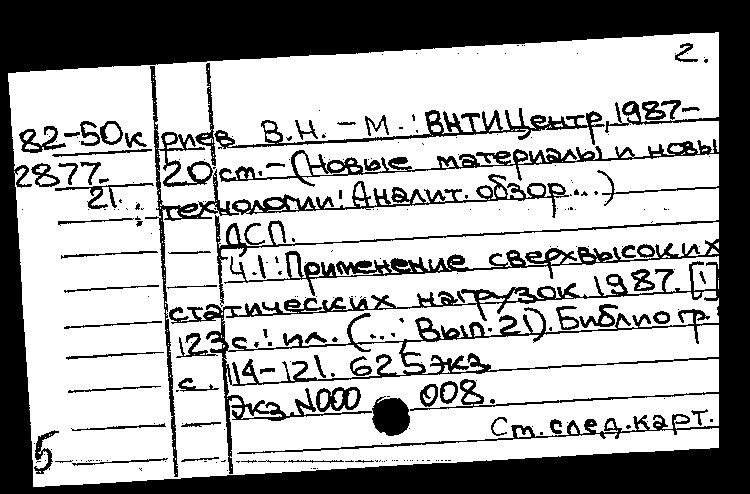 2.
82-50к риев В.Н. - М.: ВНТИЦентр, 1987-
2877- 20 см. - (Новые материалы и новы
21. : технологии: Аналит. обзор...)
ДСП.
Ч.1: Применение сверхвысоких
статических нагрузок. 1987. [1]
123 с.: ил. (...; Вып. 21). Библиогр.:
с. 114-121. 625 экз
Экз. N000 008.
Ст. след. карт.
5